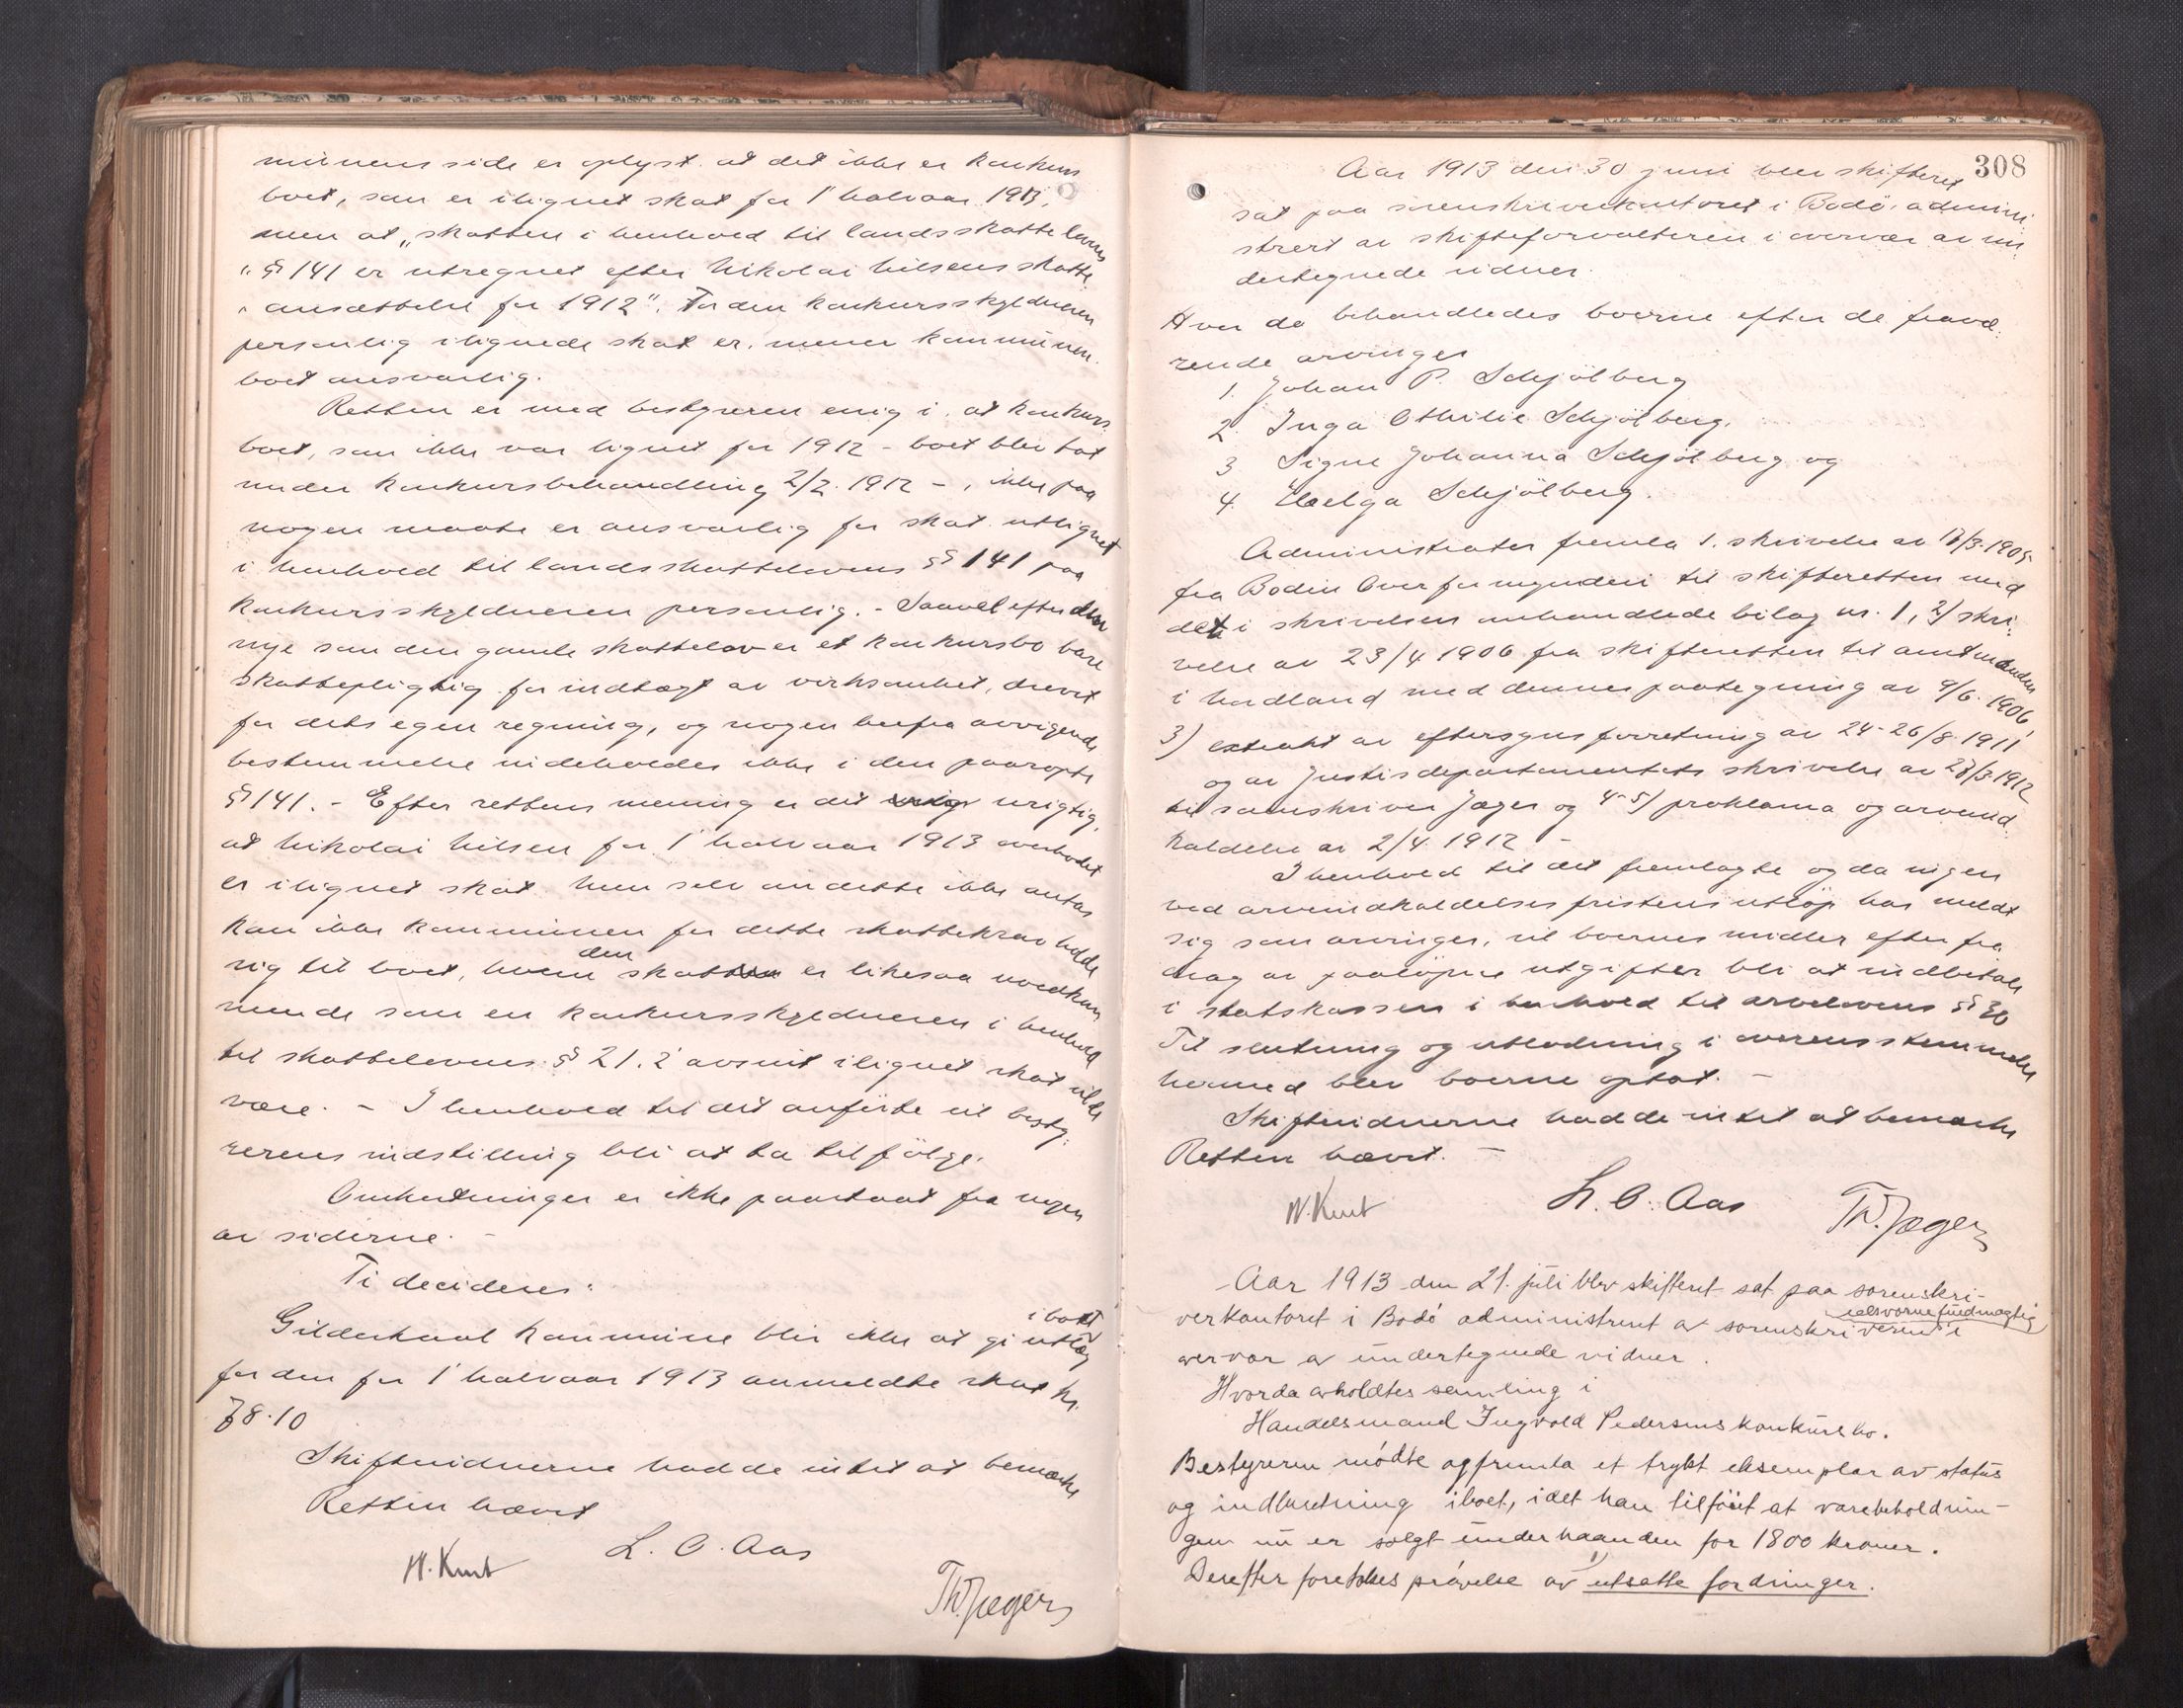 munens side er oplyst at det ikke er konkurs
boet, som er ilignet skat for 1' halvaar 1913,
men at „skatten i henhold til landsskattelovens
„§ 141 er utregnet efter Nikolai Nilsens skatte
„ansættelse for 1912". For den konkursskyldneren
personlig ilignede skat er, mener kommunen
boet ansvarlig.
Retten er med bestyreren enig i, at konkurs
boet, som ikke var lignet for 1912 - boet blev tat
under konkursbehandling 2/2 1912 -, ikke paa
nogen maate er ansvarlig for skat utlignet
i henhold til landsskattelovens § 141 paa
konkursskyldneren personlig. - Saavel efter den
nye som den gamle skattelov er et konkursbo bare
skattepligtig for indtægt av virksomhet, drevet
for dets egen regning, og nogen herfra avvigende
bestemmelse indeholdes ikke i den paaropte
§ 141. - Efter rettens mening er det urigtig,
at Nikolai Nilsen for 1' halvaar 1913 overhodet
er ilignet skat. Men selv om dette ikke antas
kan ikke kommunen for dette skattekrav holde
sig til boet, den skat er likesaa uvedkom
mende som en konkursskyldneren i henhold
til skattelovens § 21. 2' avsnit ilignet skat vilde
være. - I henhold til det anførte vil besty:
rerens indstilling bli at ta tilfølge.
Omkostninger er ikke paastaat fra nogen
av siderne. -
Ti decideres:
i boet
Gildeskaal kommune blir ikke at gi utlæg
for den for 1' halvaar 1913 anmeldte skat kr.
78.10
Skiftevidnerne hadde intet at bemærke
Retten hævet
N. Knut L. O. Aas
Th. Jæger
308
Aar 1913 den 30 juni blev skifteret
sat paa sorenskriverkontoret i Bodø admini
strert av skifteforvalteren i overvær av un
dertegnede vidner.
Hvor da behandledes boerne efter de fravæ:
rende arvinger
1. Johan P. Schjölberg
2. Inga Othilie Schjölberg,
3 Signe Johanna Schjölberg og
4. Helga Schjölberg.
Administrator fremla 1. skrivelse av 17/3. 1905
fra Bodin Overformynderi til skifteretten med
det i skrivelsen omhandlede bilag nr. 1, 2) skri:
velse av 23/4 1906 fra skifteretten til amtmanden
i Nordland med dennes paategning av 9/6. 1906,
3) extrakt av eftersynsforretning av 24-26/8. 1911
og av Justisdepartementets skrivelse av 28/3. 1912
til sorenskriver Jæger og 4-5) proklama og arveind
kaldelse av 2/4. 1912 -
I henhold til det fremlagte og da ingen
ved arveindkaldelsesfristens utløp har meldt
sig som arvinger, vil boernes midler efter fra
drag av paaløpne utgifter bli at indbetale
i statskassen i henhold til arvelovens § 30
Til slutning og utlodning i overensstemmelse
hermed blev boerne optat. -
Skiftevidnerne hadde intet at bemærke
Retten hævet. -
N. Knut L. O. Aas Th. Jæger
Aar 1913 den 21. juli blev skifteret sat paa sorenskri-
edsvorne fuldmægtig
verkontoret i Bodø administreret av sorenskriverens i
overvær av undertegnede vidner.
Hvorda avholdtes samling i
Handelsmand Ingvald Pedersens konkursbo.
Bestyreren mødte og fremla et trykt eksemplar av status
og indberetning i boet, idet han tilføiet at varebeholdnin-
gen nu er solgt underhaanden for 1800 kroner.
Derefter foretokes prøvelse av utsatte fordringer.